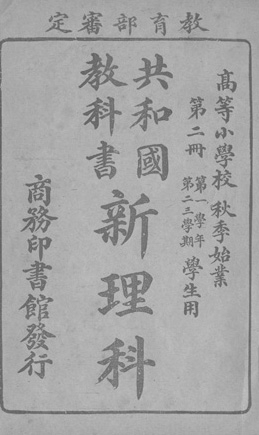 教育部審定
高等小學校 秋季始業
第二冊 第一學年 第二三學期 學生用
共和國
教科書
新理科
商務印書館發行